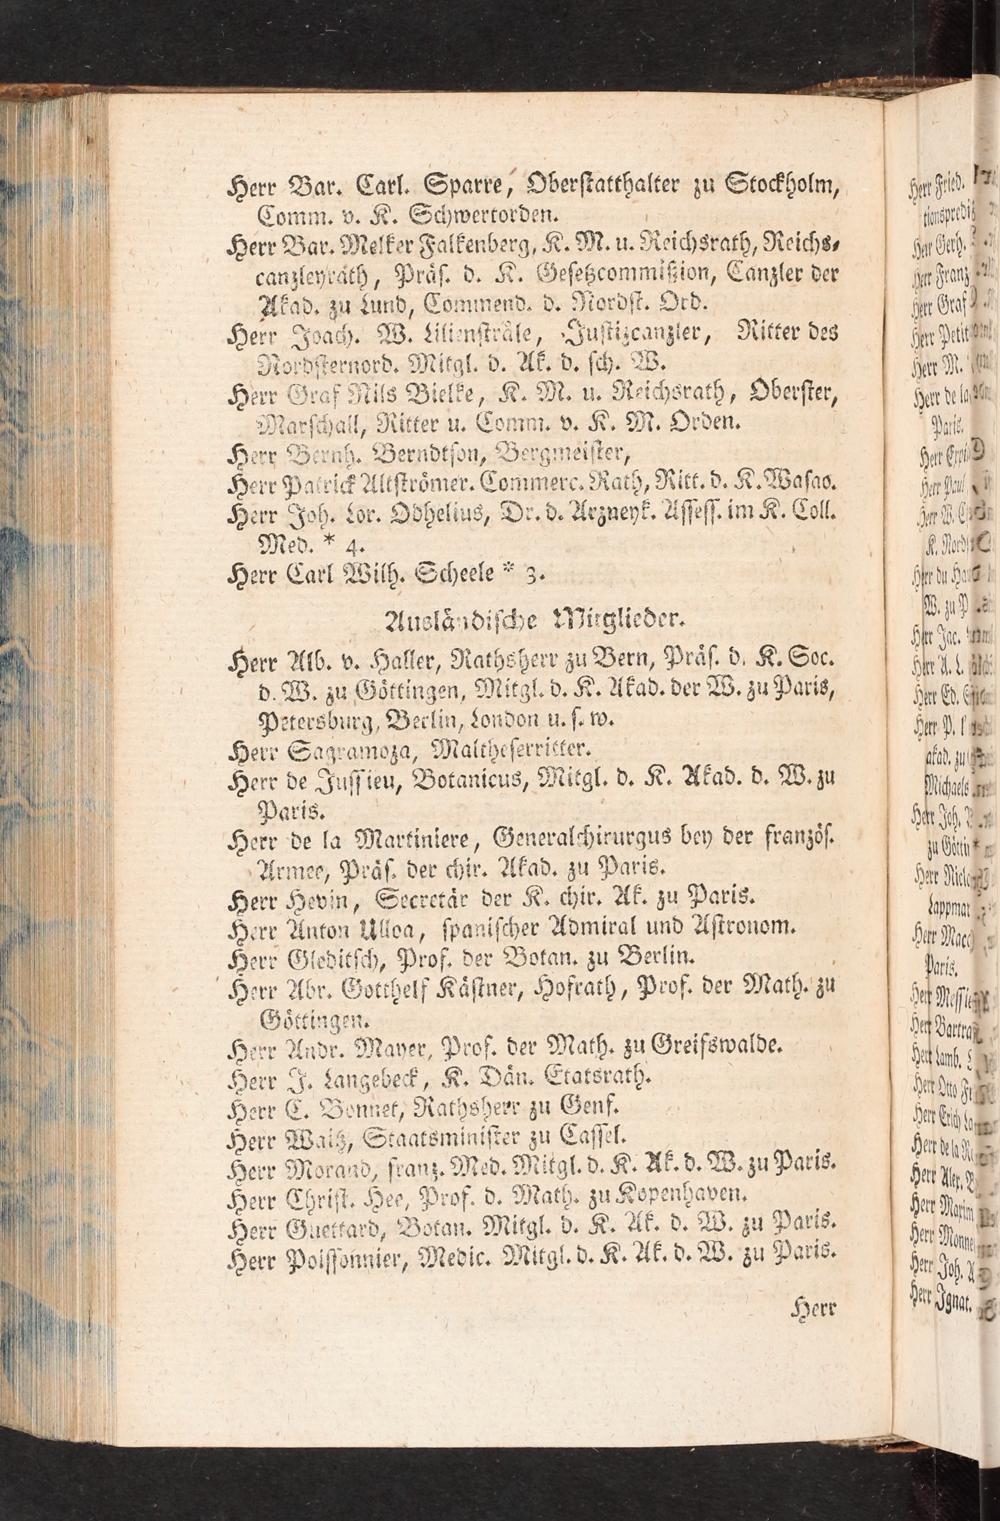 Herr Bar. Carl. Sparre, Oberstatthalter zu Stockholm,
Comm. v. K. Schwertorden.
Herr Bar. Melker Falkenberg, K. M. u. Reichsrath, Reichs-
canzleyrath, Präs. d. K. Gesetzcommißion, Canzler der
Akad. zu Lund, Commend. d. Nordst. Ord.
Herr Joach. W. Liliensträle, Justizcanzler, Ritter des
Nordsternord. Mitgl. d. Ak. d. sch. W.
Herr Graf Nils Bielke, K. M. u. Reichsrath, Oberster,
Marschall, Ritter u. Comm. v. K. M. Orden.
Herr Bernh. Berndtson, Bergmeister,
Herr Patrick Altströmer. Commerc. Rath, Ritt. d. K. Wasao.
Herr Joh. Lor. Odhelius, Dr. d. Arzneyk. Assess. im K. Coll.
Med. * 4.
Herr Carl Wilh. Scheele * 3.
Ausländische Mitglieder.
Herr Alb. v. Haller, Rathsherr zu Bern, Präs. d. K. Soc.
d. W. zu Göttingen, Mitgl. d. K. Akad. der W. zu Paris,
Petersburg, Berlin, London u. s. w.
Herr Sagramoza, Maltheserritter.
Herr de Jussieu, Botanicus, Mitgl. d. K. Akad. d. W. zu
Paris.
Herr de la Martiniere, Generalchirurgus bey der französ.
Armee, Präs. der chir. Akad. zu Paris.
Herr Hevin, Secretär der K. chir. Ak. zu Paris.
Herr Anton Ulloa, spanischer Admiral und Astronom.
Herr Gleditsch, Prof. der Botan. zu Berlin.
Herr Abr. Gotthelf Kästner, Hofrath, Prof. der Math. zu
Göttingen.
Herr Andr. Mayer, Prof. der Math. zu Greifswalde.
Herr J. Langebeck, K. Dän. Etatsrath.
Herr C. Bonnet, Rathsherr zu Genf.
Herr Waitz, Staatsminister zu Cassel.
Herr Morand, franz. Med. Mitgl. d. K. Ak. d. W. zu Paris.
Herr Christ. Hee, Prof. d. Math. zu Kopenhaven.
Herr Guettard, Botan. Mitgl. d. K. Ak. d. W. zu Paris.
Herr Poissonnier, Medic. Mitgl. d. K. Ak. d. W. zu Paris.
Herr
Herr Fried.
Herr Gerh.
Herr Franz
Herr Graf
Herr Petit
Herr M.
Herr de la
Paris.
Herr
Herr Paul
Herr W.
K.
Herr du
W. zu P
Herr Jac.
Herr A. L.
Herr Ed.
Herr P.
akad. zu
Michaels
Herr Joh.
zu Göttin
Herr
Lappmar
Herr Macq
Paris.
Herr Messie
Herr Bartra
Herr Lamb.
Herr Otto
Herr Erich
Herr de la
Herr Alex.
Herr Marim
Herr Monne
Herr Joh. A
Herr Ignat.